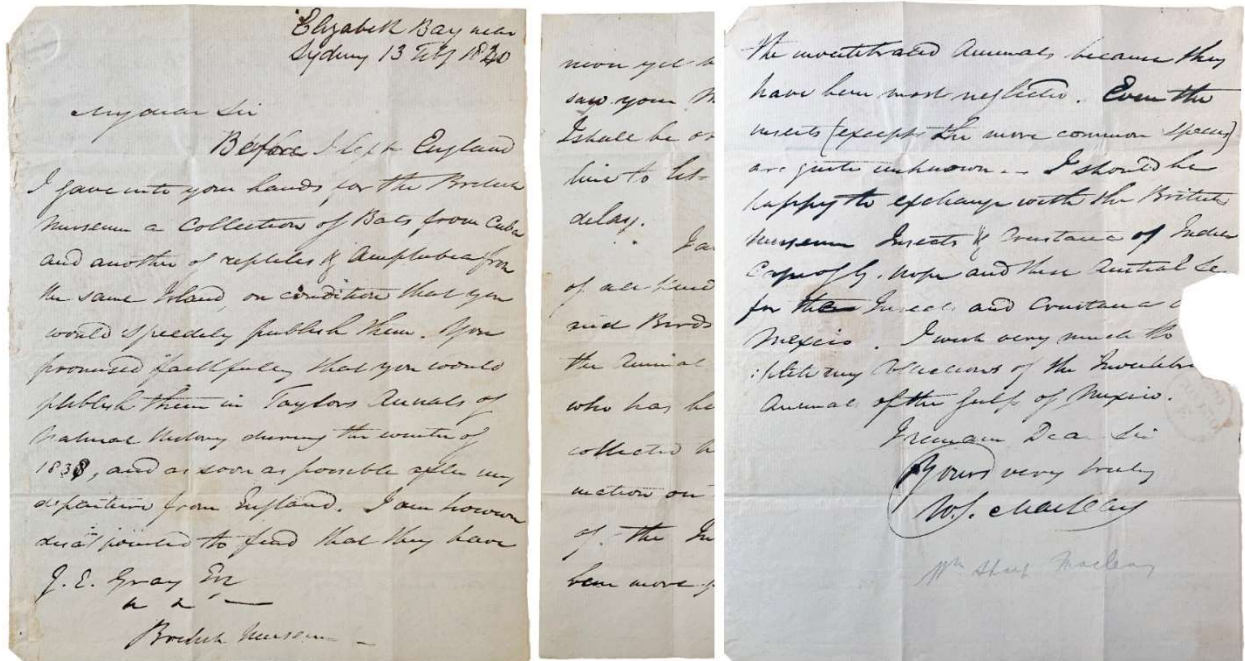 Elizabeth Bay near
Sydney 13 July 1840
My dear Sir
Before I left England
I gave into your hands for the British
Museum a Collection of Bats from Cuba
and another of reptiles & Amphibia from
the same Island, on condition that you
would speedily publish them. You
promised faithfully that you would
publish them in Taylors Annals of
Natural History during the winter of
1838, and as soon as possible after my
departure from England. I am however
disappointed to find that they have
J. E. Gray Esq
British Museum
never yet b
saw your M
I shall be o
line to let
delay.
I a
of all kind
and Birds
the animal
who has be
collected h
nuction on
of the In
been more p
the invertebrated Animals because they
have been most neglected. Even the
insects (except the more common species)
are quite unknown. I should be
happy to exchange with the British
Museum Insects & Crustacea of India
Cape of G. Hope and these Austral
for the Insects and Crustacea
Mexico. I wish very much to
:plete my Collections of the Invertebra
Animals of the Gulf of Mexico.
I remain Dear Sir
Yours very truly
W. S. MacLeay
Wm Sharp Macleay